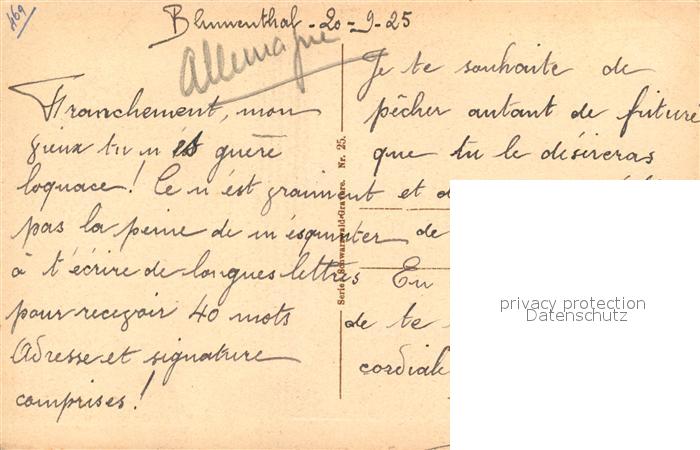 469
Blumenthal - 20 - 9 - 25
Allemagne
Franchement, mon
vieux tu n'és guère
loquace! Ce n'est vraiment
pas la peine de m'esquinter
à t'écrire de longues lettres
pour recevoir 40 mots
Adresse et signature
comprises!
Serie: Schwarzwald-Gravüre. Nr. 25.
Je te souhaite de
pêcher autant de friture
que tu le désireras
et
de
En
de te
cordiale
privacy protection
Datenschutz